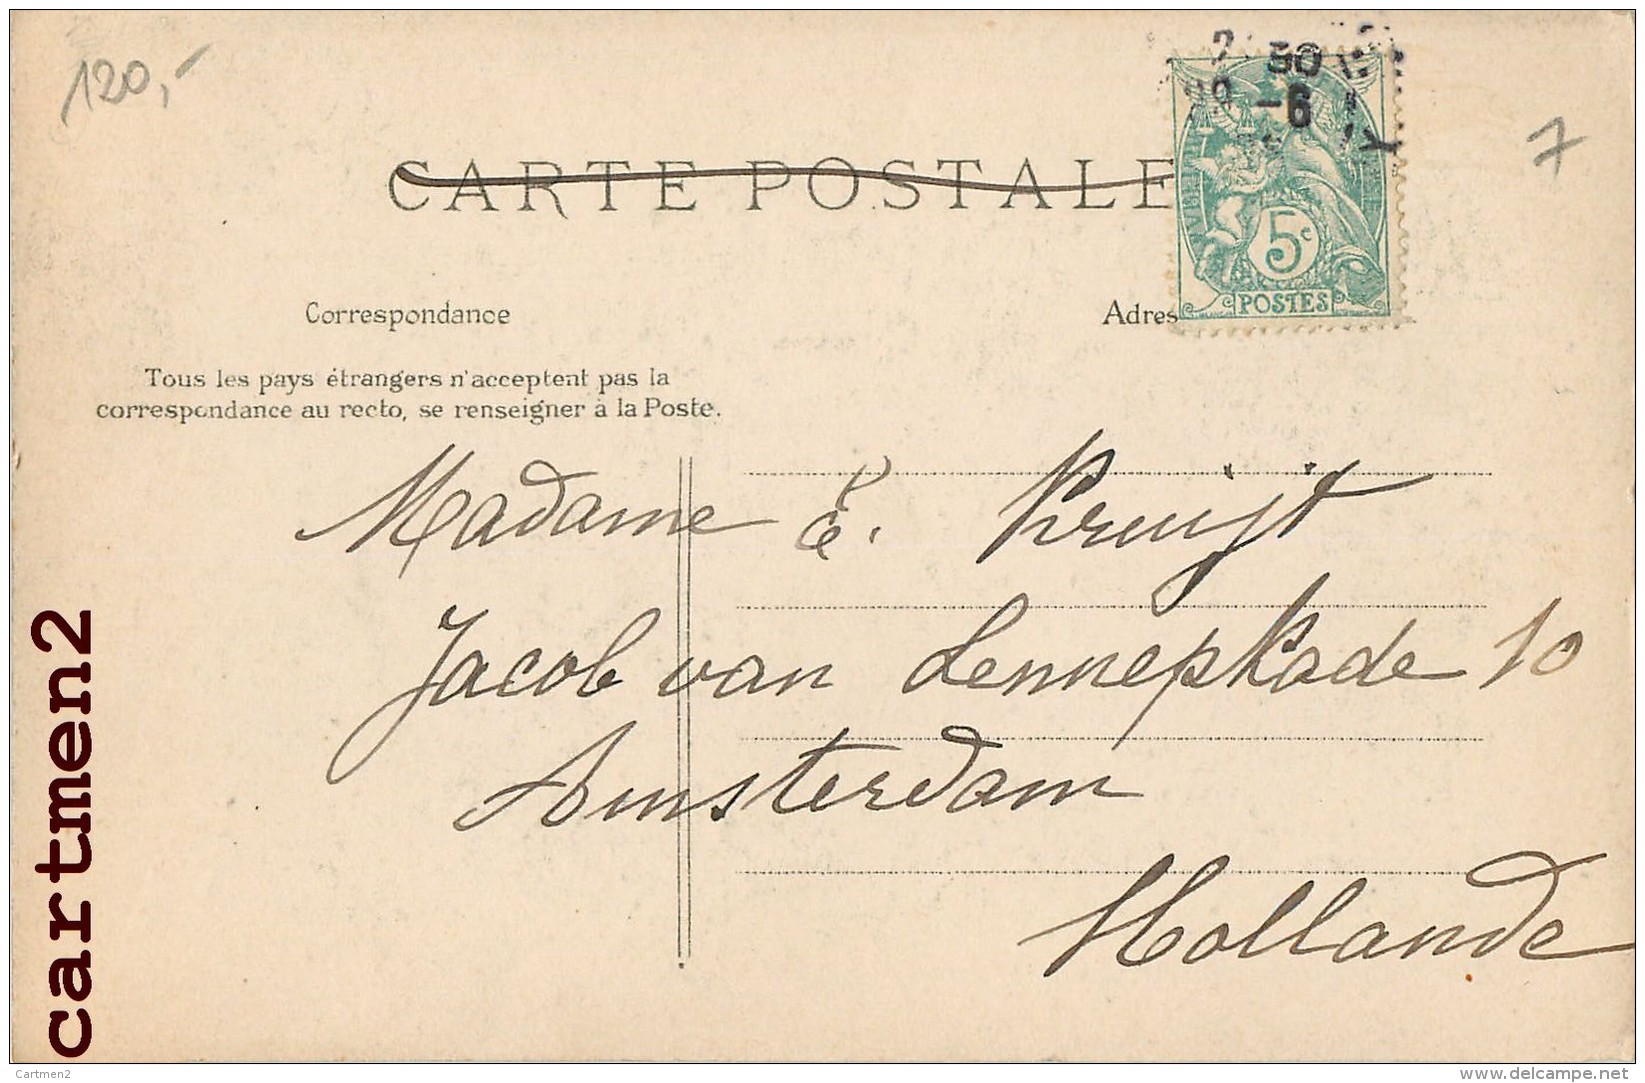 120,-
7
30
-6
CARTE POSTALE
5c
POSTES
Correspondance
Adres
Tous les pays étrangers n'acceptent pas la
correspondance au recto, se renseigner à la Poste.
Madame E. Kruijt
Jacob van Lennepkade 10
Amsterdam
Hollande
cartmen2
Cartmen2
delcampe.net